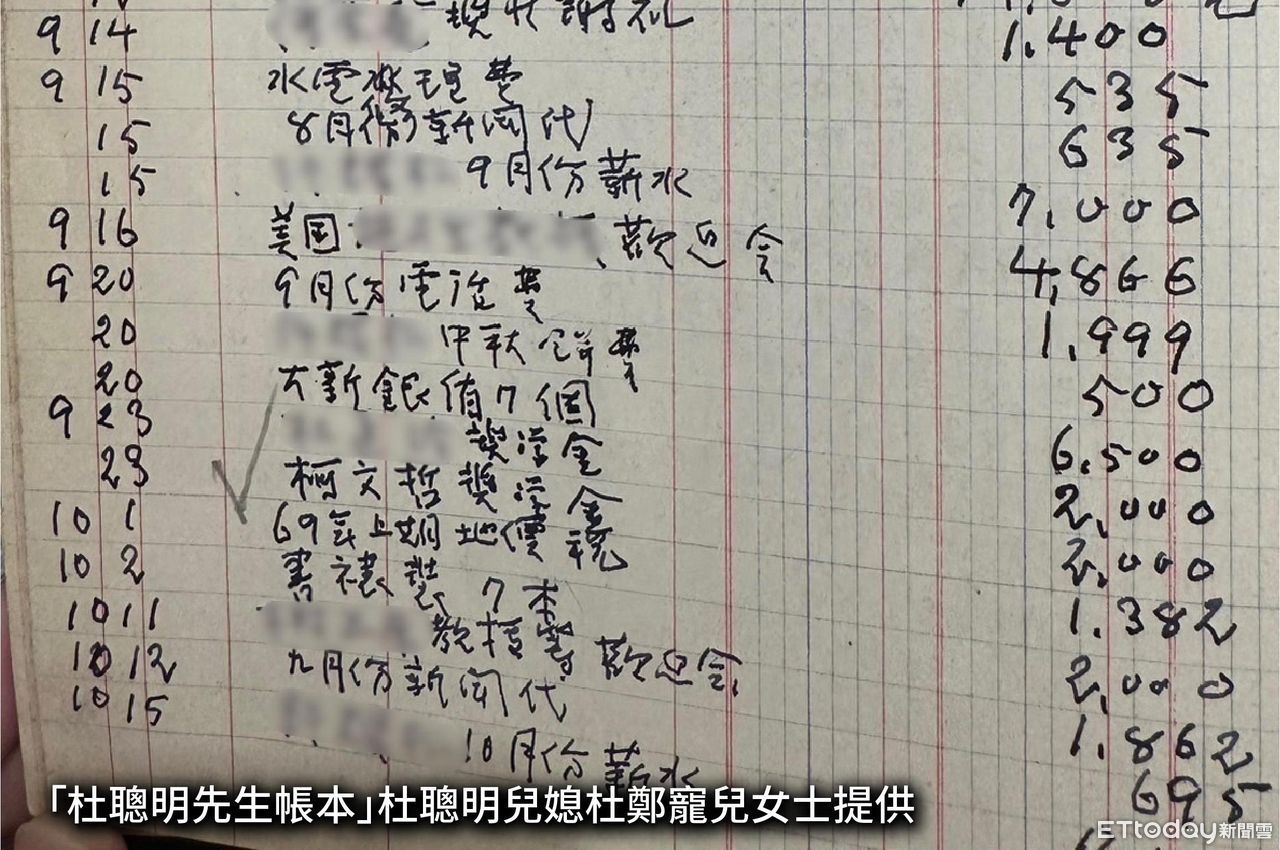 9 14 獎狀謝礼 1.400
9 15 水電修理費 535
15 8月份新聞代 635
15 9月份薪水 7.000
9 16 美国 歡迎会 4.866
9 20 9月份電话費 1.999
20 中秋餅費 500
20 大新銀 7個 6.500
9 23 獎学金 2.000
23 柯文哲獎学金 2.000
10 1 69年上期地價税 1.382
10 2 書裱裝 7本 2.000
10 11 教授等歡迎会 1.862
10 12 九月份新聞代 695
10 15 10月份薪水
「杜聰明先生帳本」杜聰明兒媳杜鄭寵兒女士提供
ETtoday新聞雲